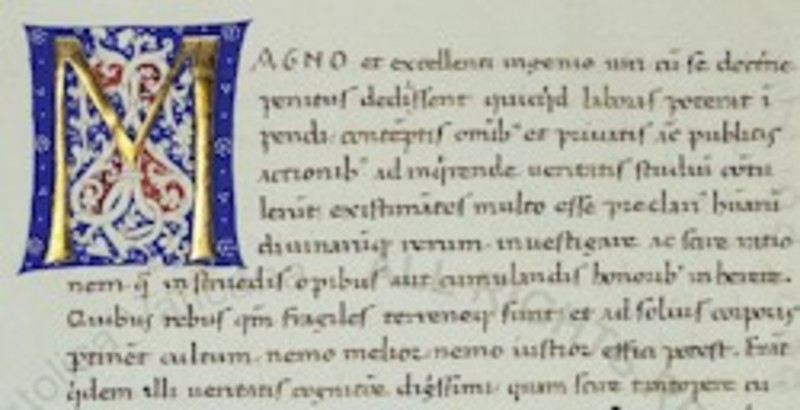 MAGNO et excellenti ingenio uiri cū se doctrine
penitus dedissent quicq̇d laboris poterat ī
pendi contēptis omīb᾽ et priuatis ac᷒ publicis
actionib᾽ ad inq̇rende ueritatis studiū cōtu
lerūt existimātes multo esse preclari᾽ humā
diuinariq̨ rerum inuestigare ac scire ratio
nem q̄ in struēdis opibus aut cumulandis honorib᾽ inherere.
Quibus rebus qm̄ fragiles terreneq̨ sunt et ad solius corporis
ꝑtinēt cultum nemo melior nemo iustior effici potest. Erāt
q̇dem illi ueritatis cognitiōe digⁿissimi quam scire tantopere cu
ALL RIGHTS